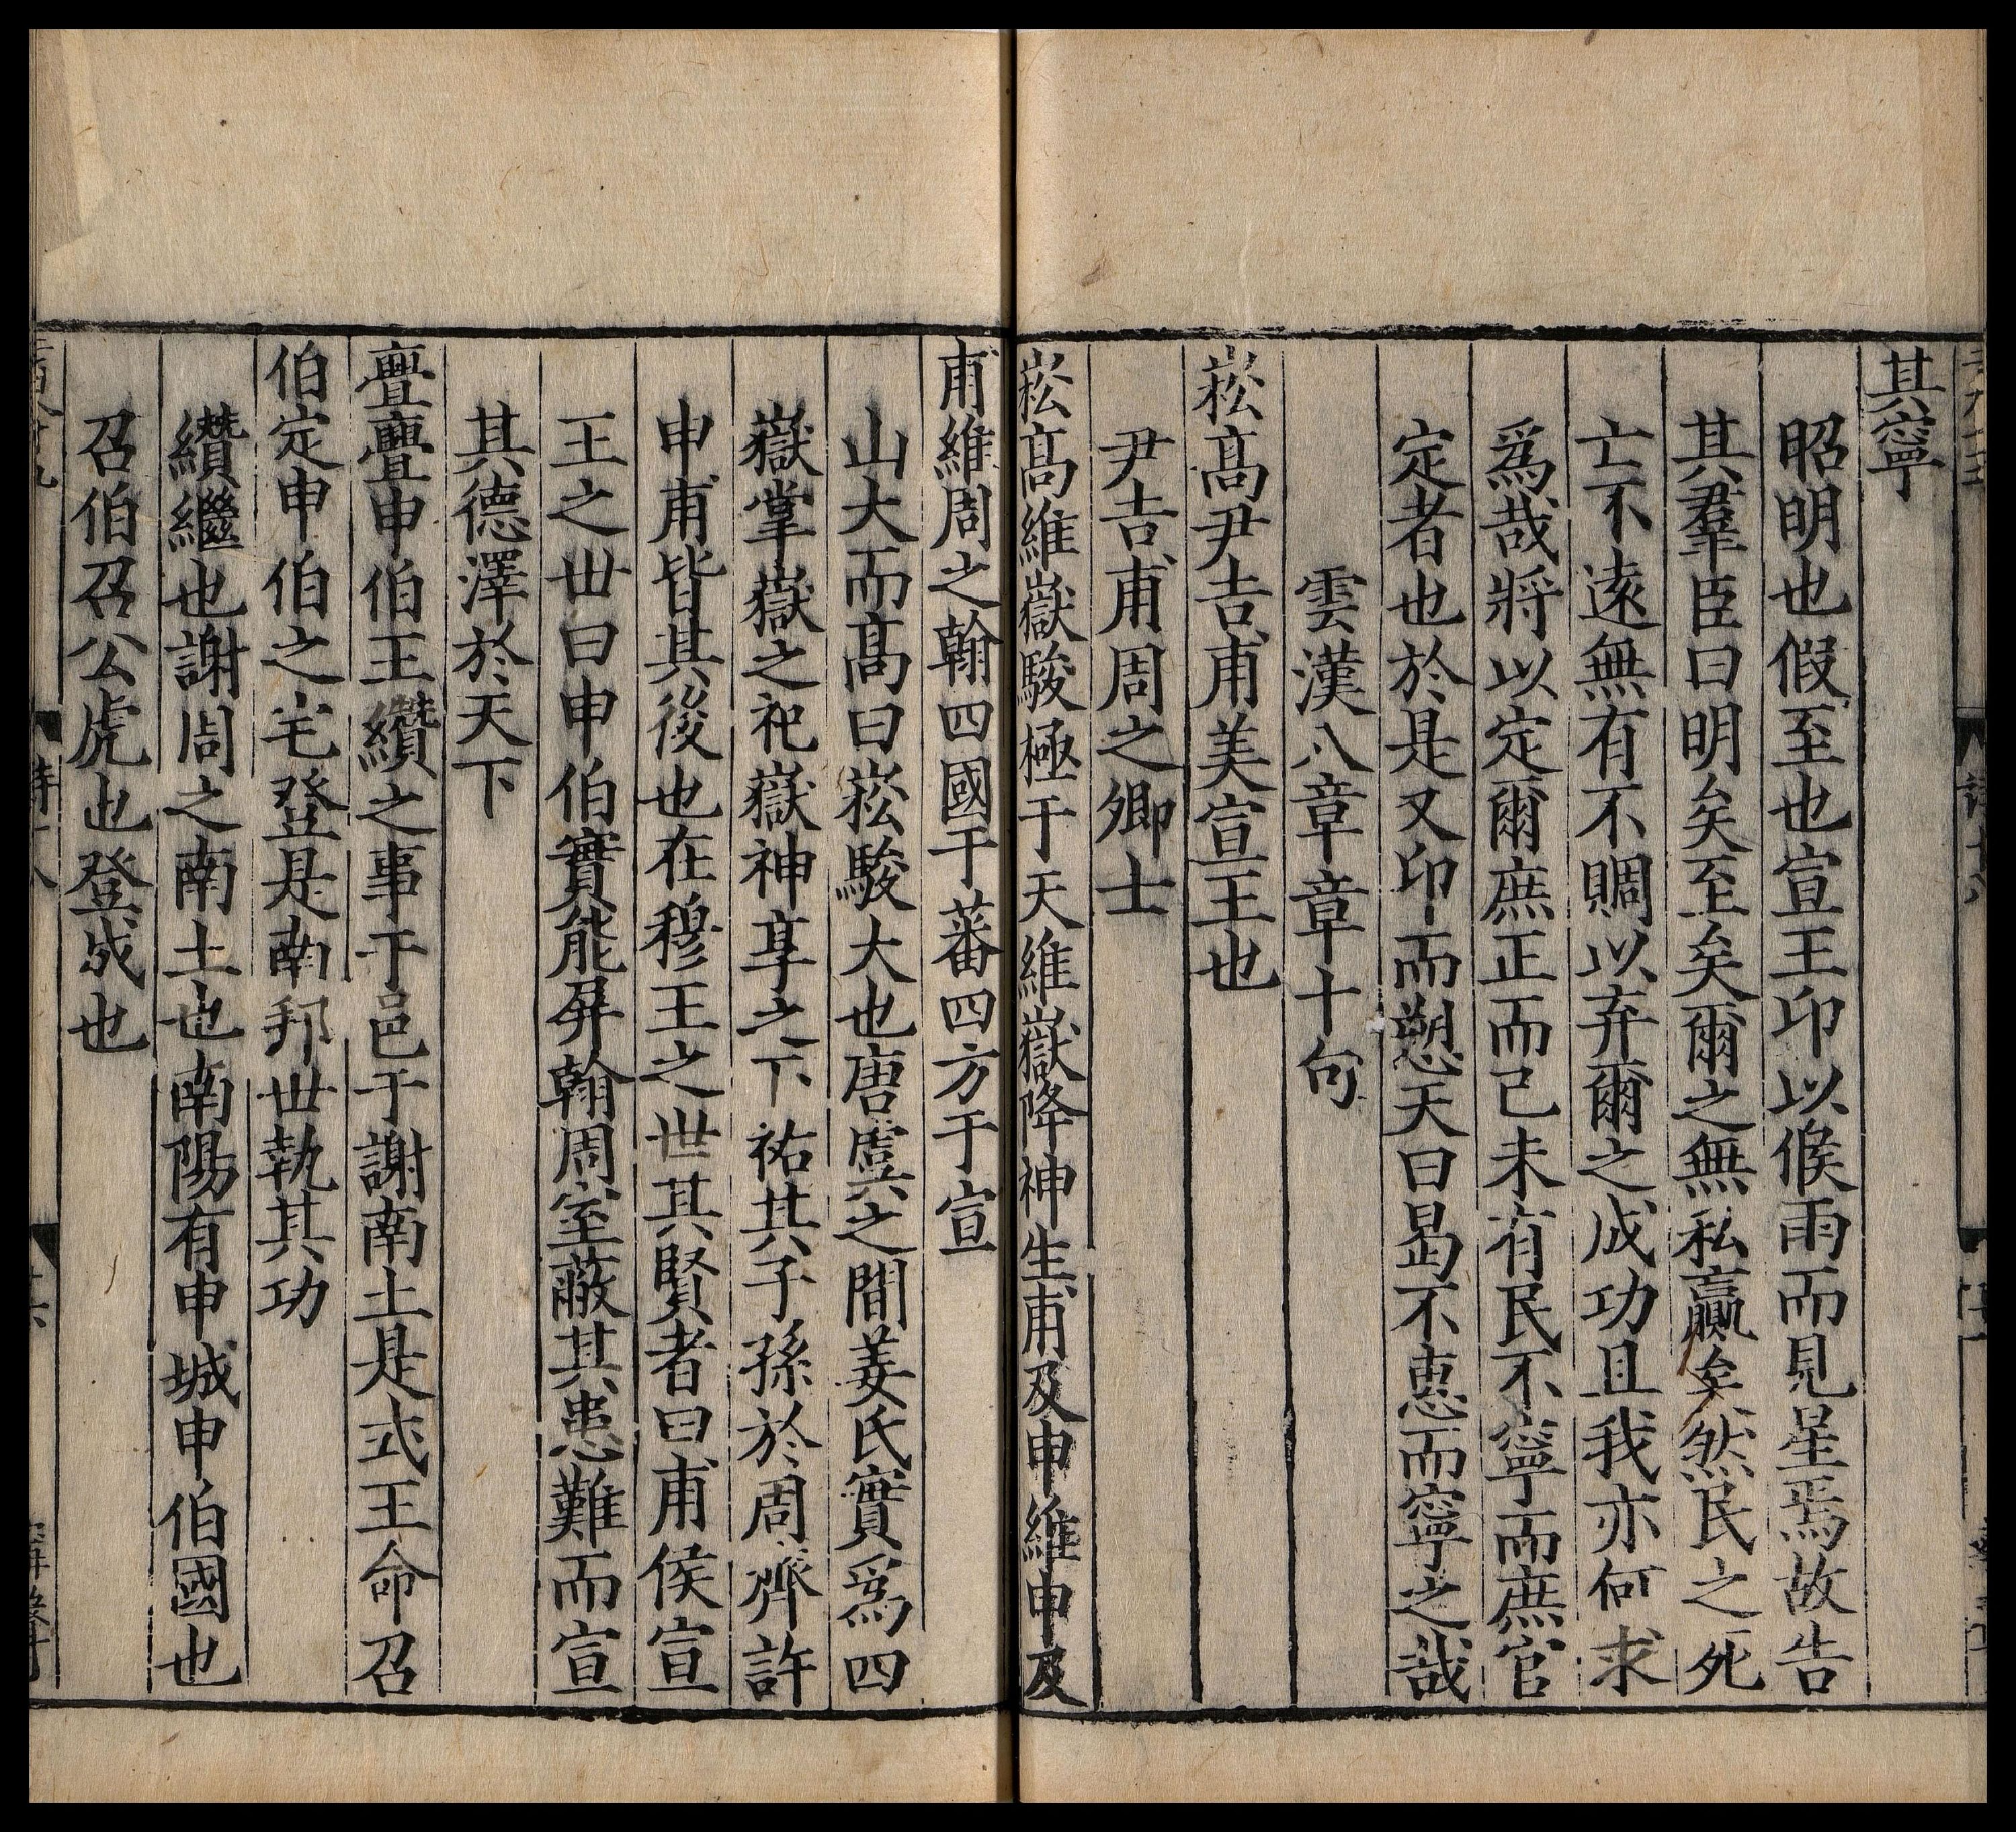 其寧
昭明也假至也宣王卬以候雨而見星焉故告
其羣臣曰明矣至矣爾之無私贏矣然民之死
亡不遠無有不賙以弃爾之成功且我亦何求
爲哉將以定爾庶正而已未有民不寧而庶官
定者也於是又卬而愬天曰曷不惠而寧之哉
雲漢八章章十句
崧高尹吉甫美宣王也
尹吉甫周之卿士
崧高維嶽駿極于天維嶽降神生甫及申維申及
甫維周之翰四國于蕃四方于宣
山大而高曰崧駿大也唐虞之間姜氏實爲四
嶽掌嶽之祀嶽神享之下祐其子孫於周齊許
申甫皆其後也在穆王之世其賢者曰甫侯宣
王之世曰申伯實能屏翰周室蔽其患難而宣
其德澤於天下
亹亹申伯王纘之事于邑于謝南土是式王命召
伯定申伯之宅登是南邦世執其功
纘繼也謝周之南土也南陽有申城申伯國也
召伯召公虎也登成也